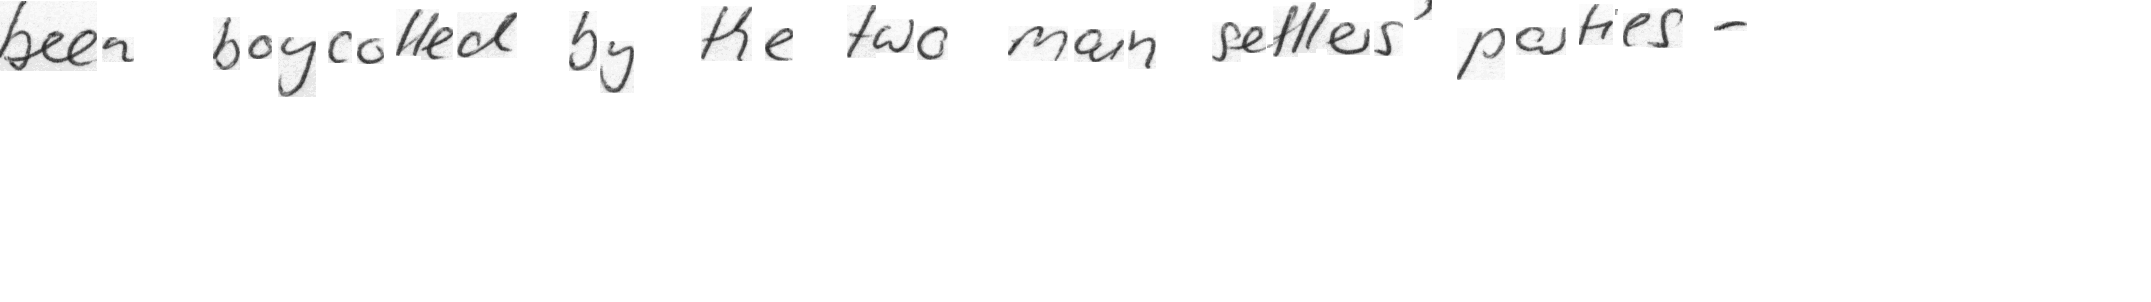 been boycotted by the two main settlers' parties -